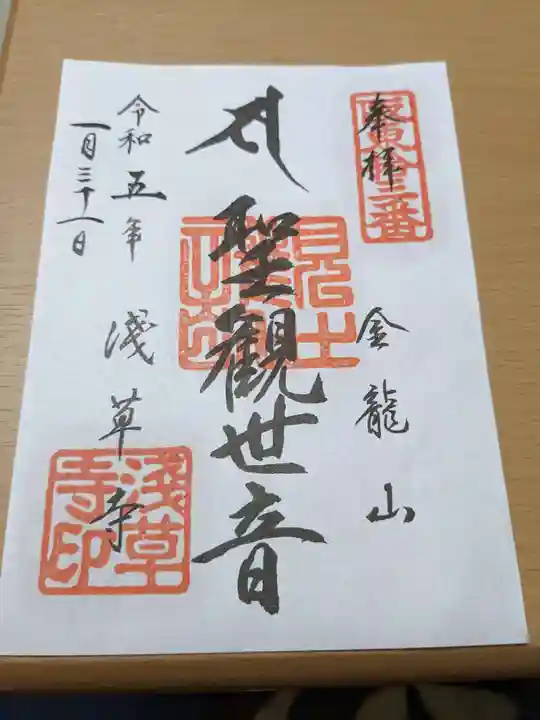 奉拝
坂東拾三番
金龍山
聖観世音
令和五年
一月三十一日
浅草寺
浅草寺印